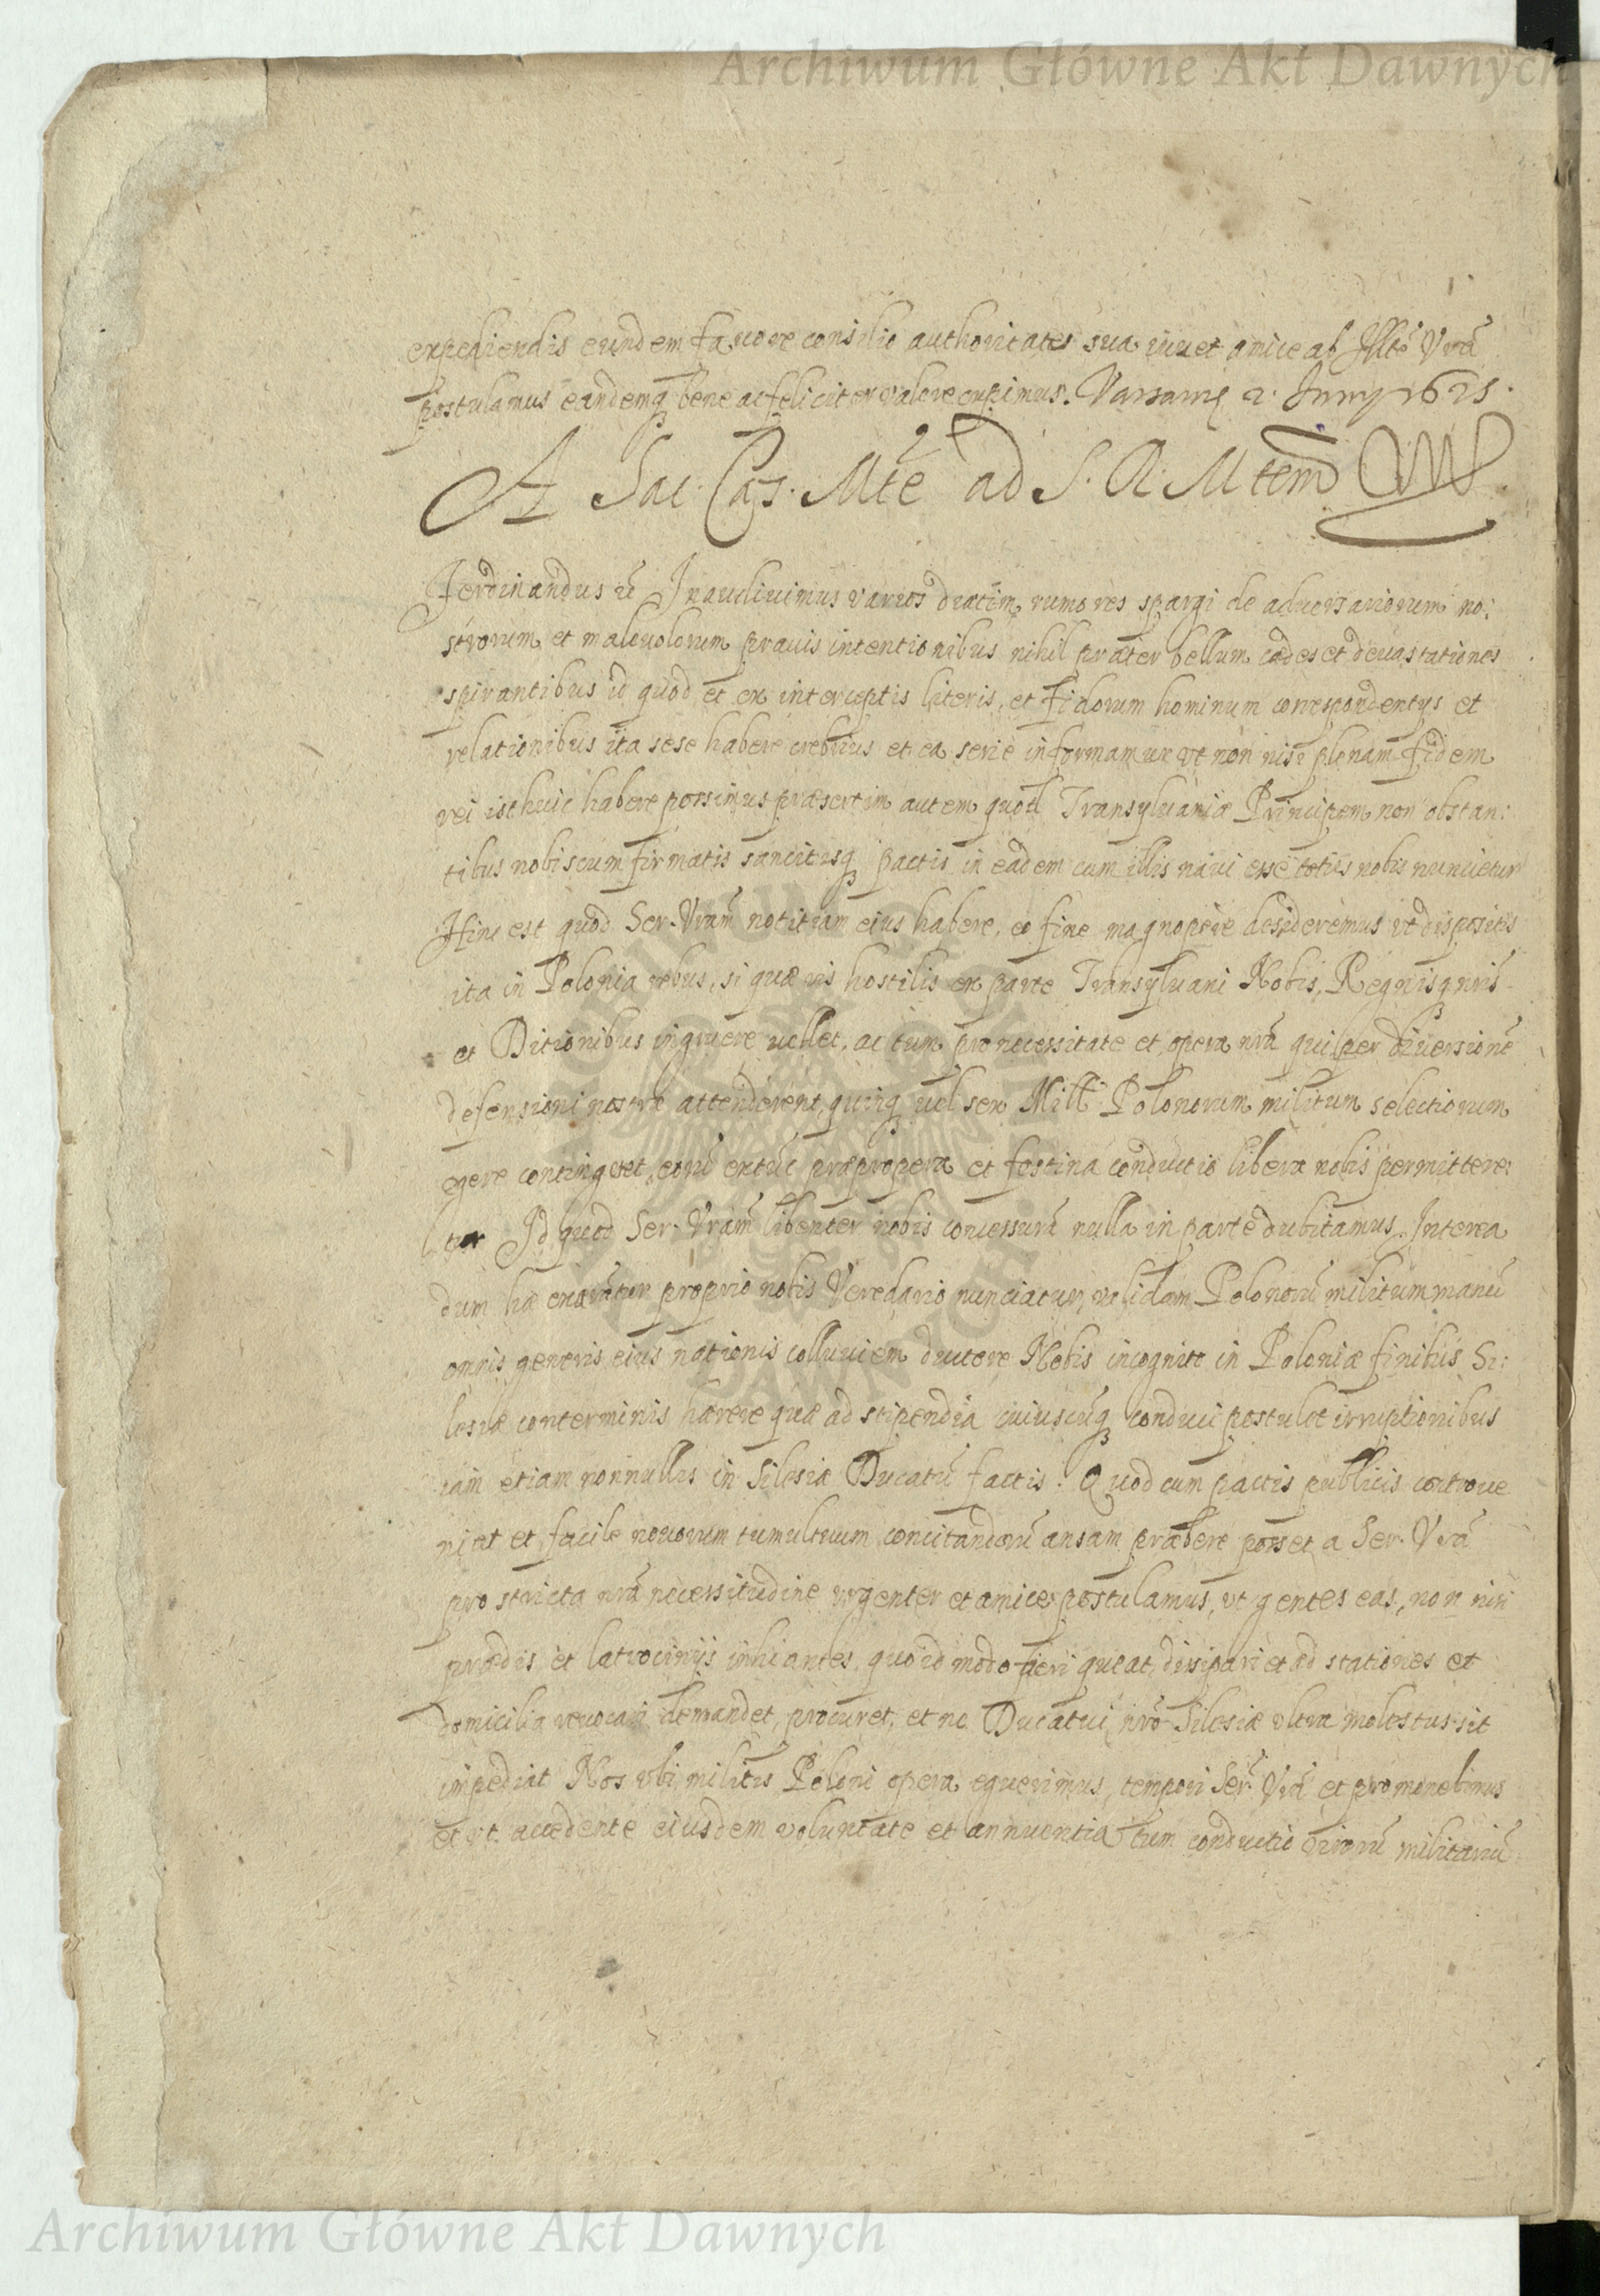 Archiwum Główne Akt Dawnych
expediendis eundem favore consilio authoritate sua iuvet amice ab Illte Vrã
postulamus eandemq bene ac feliciter valere cupimus. Varsaviæ 2. Juny 1625.
A Sac. Cæs. Mtẽ ad S. R. Mtem
Ferdinandus &c Inaudivimus varios rumores spargi de adversariorum no:
strorum et malevolorum pravis intentionibus nihil præter bellum cædes et devastationes
spirantibus id quod et ex interceptis literis, et fidorum hominum correspondentys et
relationibus ita sese habere crebrius et ea serie informamur vt non nisi plenam fidem
rei isthuic habere possimus præsertim autem quod Transylvaniæ Principem non obstan:
tibus nobiscum firmatis sancitisq pactis in eadem cum illis navi esse totus nobis nuncietur
Hinc est quod Ser. Vram notitiam eius habere, eo fine magnopere desideremus vt dispositis
ita in Polonia rebus, si quæ vis hostilis ex parte Transylvani Nobis, Regnisq nris
et Ditionibus ingruere vellet, ac tum pro necessitate et opera nrã qui per diversionẽ
defensioni nostræ attenderent, quinq vel sex Mill. Polonorum militum selectiorum
egere contingeret, eorũ extũc præpropera et festina conductio libera nobis permittere:
tur Id quod Ser. Vram libenter nobis concessurã nulla in parte dubitamus. Interea
dum hæ exarãtur proprio nobis Veredario nunciatur, validam Polonorũ militum manũ
omnis generis eius nationis colluviem ductore Nobis incognito in Poloniæ finibus Si:
lesiæ conterminis hærere quæ ad stipendia cuiuscũq conduci postulet irruptionibus
iam etiam nonnullis in Silesiæ Ducatũ factis. Quod cum pactis publicis controve
niat et facile novorum tumultuum concitandorũ ansam præbere posset a Ser. Vrã
pro stricta nrã necessitudine vrgenter et amice postulamus, vt gentes eas, non nisi
prædis et latrociniis inhiantes, quo id modo fieri queat, dissipari et ad stationes et
domicilia revocari demandet, procuret, et ne Ducatui nrõ Silesiæ vltra molestus sit
impediat Nos vbi militis Poloni opera eguerimus, tempori Ser. Vrã et promonebimus
et vt accedente eiusdem voluntate et annuentia tum conductio virorũ militariũ
Archiwum Główne Akt Dawnych